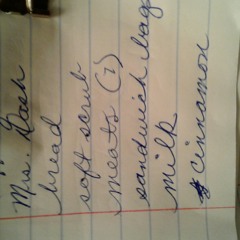 Mrs. Dash
bread
soft scrub
meats (2)
sandwich bag
milk
cinnamon